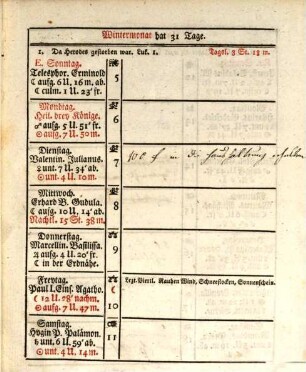 Wintermonat hat 31 Tage.
1. Da Herodes gestorben war. Luk. 1. Tagsl. 8 St. 13 m.
E. Sonntag.
Telesphor. Erminold
☾ aufg. 6 U. 16 m. ab.
☾ culm. 1 U. 23' fr.
5
Montag.
Heil. drey Könige.
♂ aufg. 5 U. 51' fr.
☉ aufg. 7 U. 50 m.
6
Dienstag.
Valentin. Julianus.
☿ unt. 7 U. 34' ab.
☉ unt. 4 U. 10 m.
7
100 f
Mittwoch.
Erhard B. Gudula.
☾ aufg. 10 U. 14' ab.
Nachtl. 15 St. 38 m.
8
Donnerstag.
Marcellin. Basilissa.
♃ aufg. 4 U. 20' fr.
☾ in der Erdnähe.
9
Freytag.
Paul I. Eins. Agatho.
☾ 12 U. 28' nachm.
☉ aufg. 7 U. 47 m.
☾
10
Lezt. Viertl. Rauhen Wind, Schneeflocken, Sonnenschein.
Samstag.
Hygin P. Palämon.
♄ unt. 6 U. 59' ab.
☉ unt. 4 U. 14 m.
11